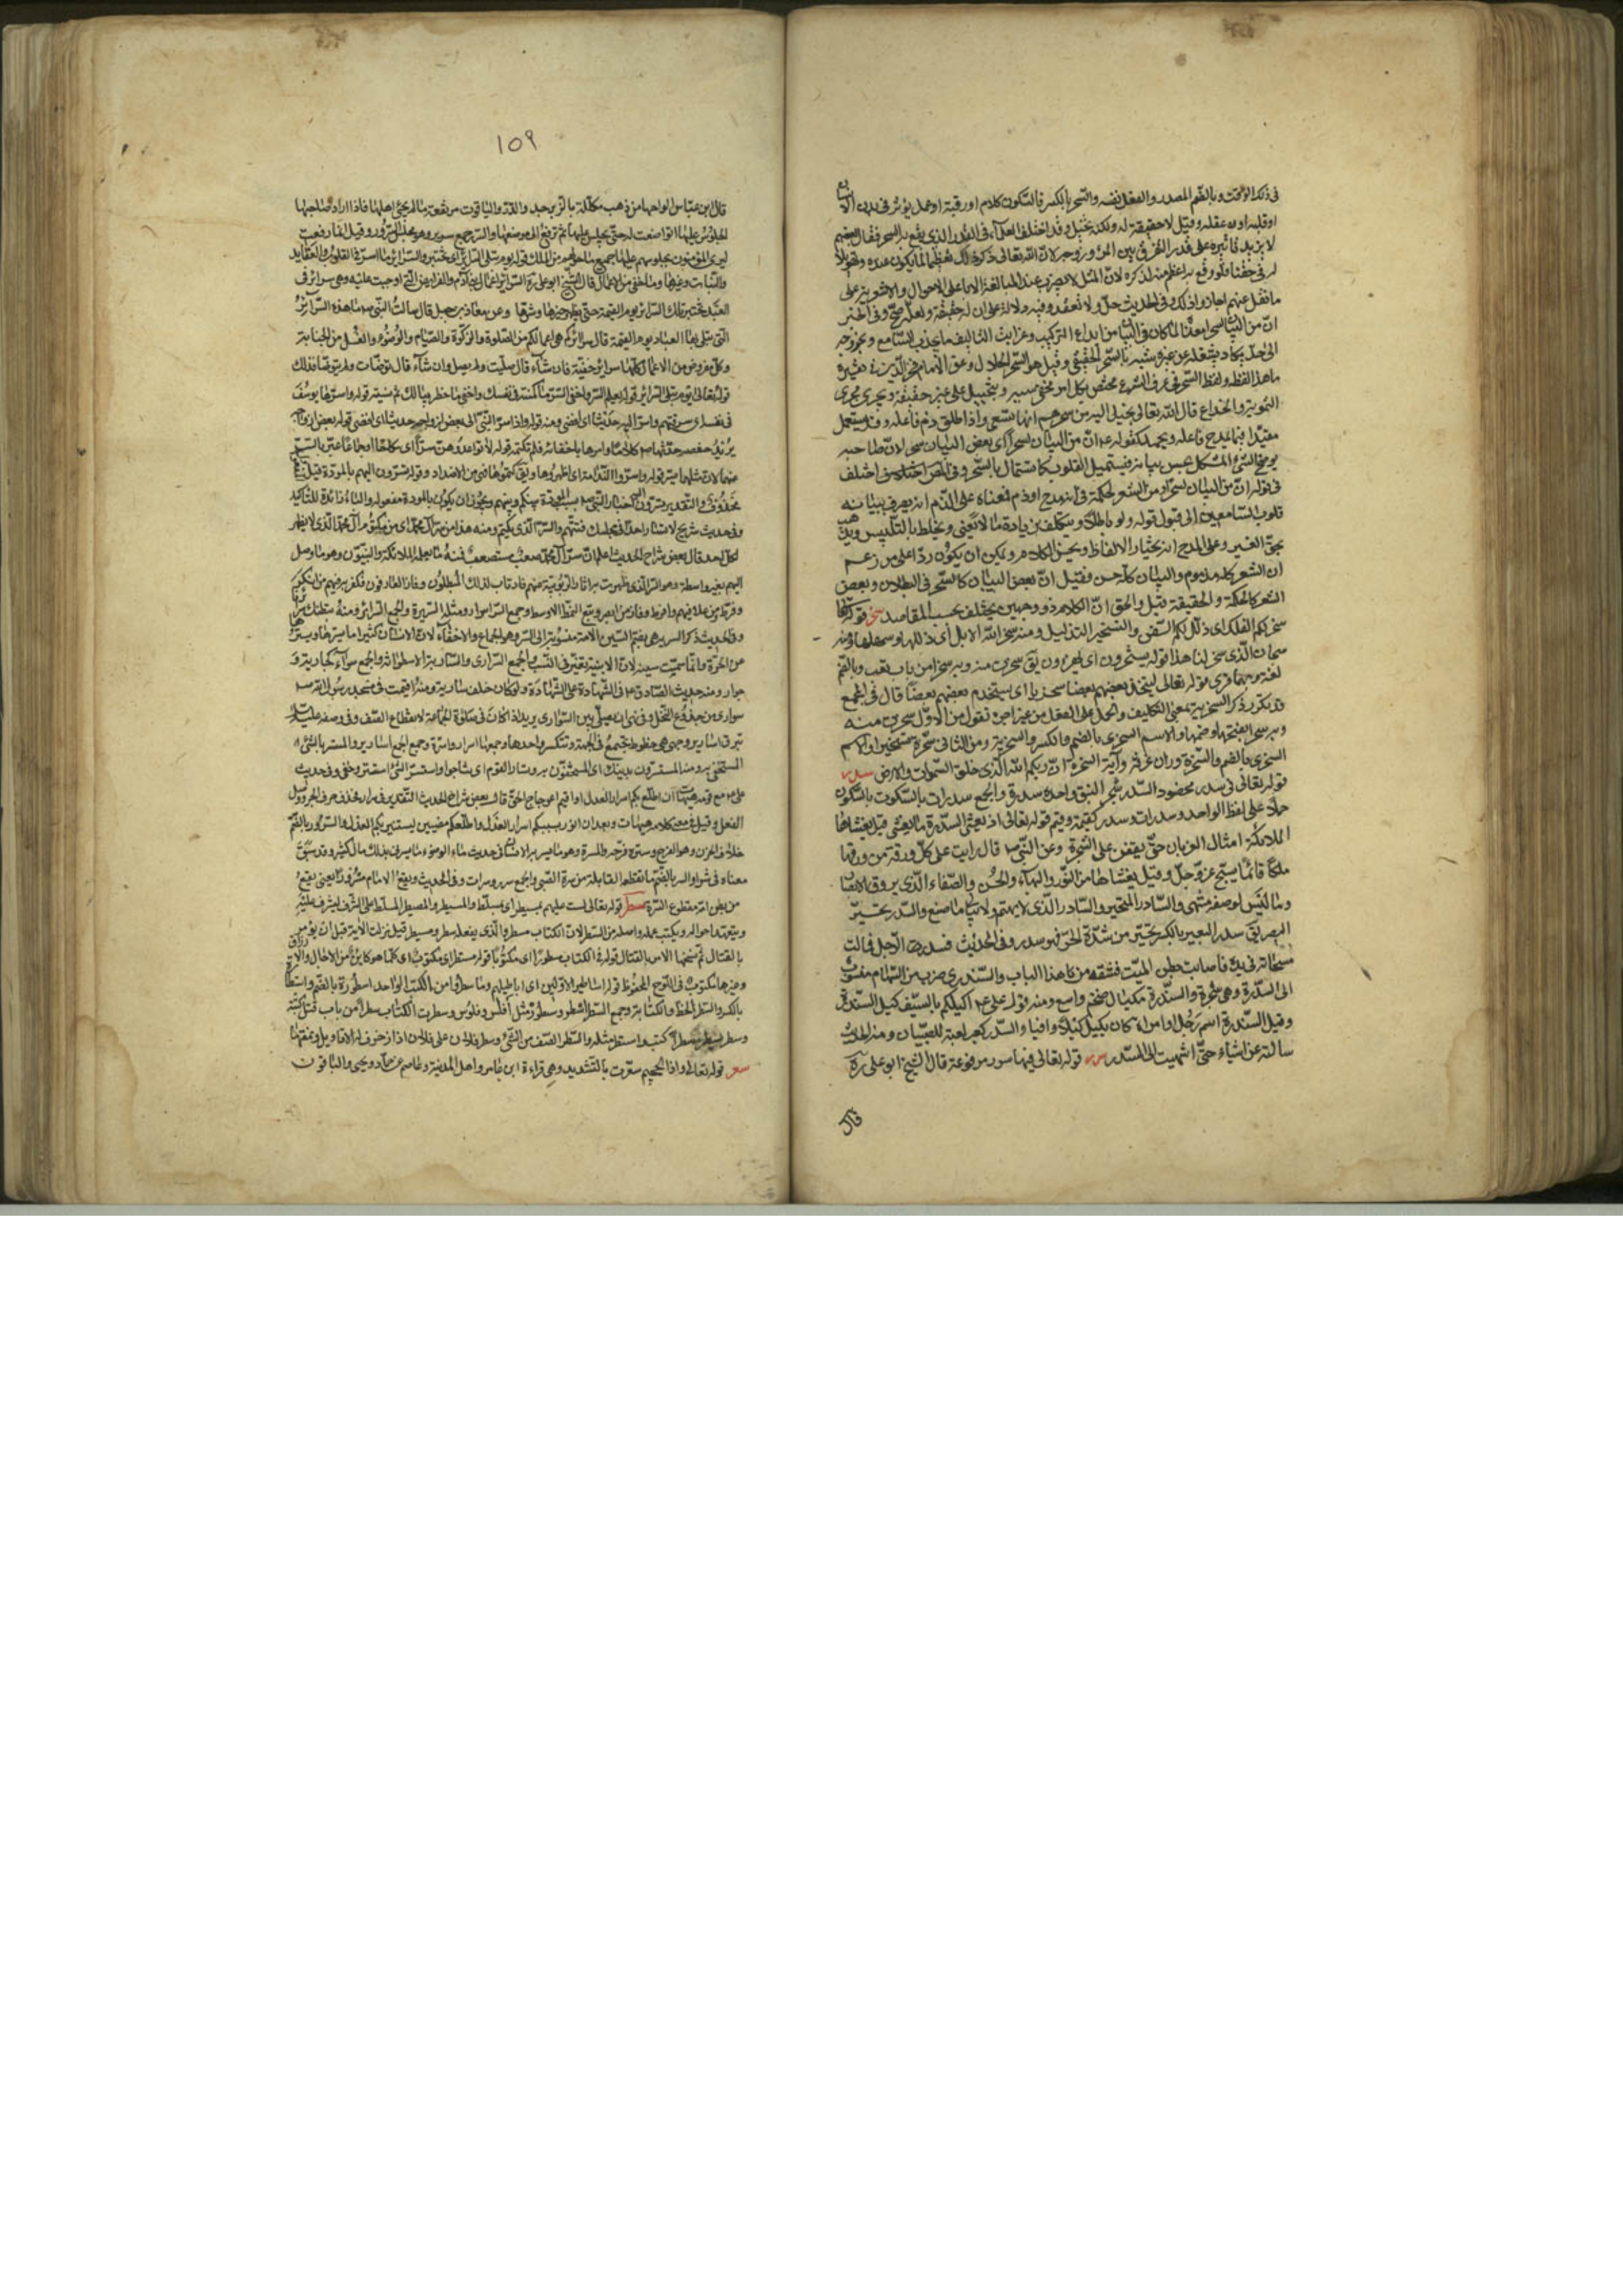 فى ذلك الوقت وبالضم المصدر والفعل نفسه والسحر بالكسر فالسكون كلام او رقية او عمل يؤثر فى بدن الانسان
او قلبه او عقله وقيل لا حقيقة له ولكنه تخييل وقد اختلف العلماء فى القدر الذى يقع به السحر فقال بعضهم
لا يزيد تاثيره على قدر التفرق بين المرء وزوجه لان الله تعالى ذكر ذلك تعظيما لما يكون عنده وتهويلا
له فى حقنا فلو وقع به اعظم منه لذكره لان المثل لا يضرب عند المبالغة الا باعلى الاحوال والاشعرية على
ما نقل عنهم اجازوا ذلك وفى الحديث حل ولا تعقد وفيه دلالة على ان له حقيقة ولعله صح وفى الخبر
ان من البيان لسحرا معناه لما كان فى البيان من ابداع التركيب وغرائب التاليف ما يجذب السامع ويخرجه
الى حد يكاد يشغله عن غيره شبه بالسحر الحقيقى وقيل هو السحر الحلال وعن الامام فخر الدين فى تفسيره
ما هذا لفظه ولفظ السحر فى عرف الشرع مختص بكل امر مخفى سببه ويتخيل على غير حقيقة ويجرى مجرى
التمويه والخداع قال الله تعالى يخيل اليه من سحرهم انها تسعى واذا اطلق ذم فاعله وقد يستعمل
مقيدا فيما يمدح فاعله ويحمد كقوله ع ان من البيان لسحرا اى بعض البيان سحر لان صاحبه
يوضح الشئ المشكل بحسن بيانه فيستميل القلوب كما تستمال بالسحر وفى اختلف
فى قوله ان من البيان لسحرا ومن الشعر لحكمة فى انه مدح او ذم فمعناه على الذم انه يصرف ببيانه
قلوب السامعين الى قبول قوله ولو باطلا ويتكلف بزيادة ما لا يعنى ويخلط بالتلبيس ويذهب
بحق الغير وعلى المدح انه يختار الالفاظ ويحسن الكلام ويمكن ان يكون ردا على من زعم
ان الشعر كله مذموم والبيان كله حسن فقيل ان بعض البيان كالسحر فى البطلان وبعض
الشعر كالحكمة والحقيقة وقيل والحق ان الكلام ذو وجهين يختلف بحسب المقاصد سخر قوله تعالى
سخر لكم الفلك اى ذلل لكم السفن والتسخير التذليل ومنه سخر الله الابل اى ذللها وسهلها ومنه
سبحان الذى سخر لنا هذا قوله يستسخرون اى يسخرون يق سخرت منه وبه سخرا من باب تعب وبالضم
لغة وبهما قرئ قوله تعالى ليتخذ بعضهم بعضا سخريا اى استخدم بعضهم بعضا قال فى المجمع
وقد تكرر ذكر السخرية بمعنى التكليف والحمل على الفعل من غير اجرة تقول من الاول سخرت منه
وبه سخرا بفتحها وضمها والاسم السخرى بالضم والكسر والسخرية ومن الثانى سخره تسخيرا والاسم
السخرى بالضم والسخرة وزان غرفة وآية السخرة ان ربكم الله الذى خلق السموات والارض سدر
قوله تعالى فى سدر مخضود السدر شجر النبق واحده سدرة والجمع سدرات بالسكون
حملا على لفظ الواحد وسدرات وسدر كقيمة وقيم قوله تعالى اذ يغشى السدرة ما يغشى قيل يغشاها
الملائكة امثال الغربان حتى يقعن على الشجرة وعن النبى ص قال رايت على كل ورقة من ورقها
ملكا قائما يسبح عز وجل وقيل يغشاها من النور والبهاء والحسن والصفاء الذى يروق الابصار
وما ليس لوصفه منتهى والسادر المتحير والسادر الذى لا يهتم ولا يبالى ما صنع والسدر تحير
البصر يق سدر البعير بالكسر تحير من شدة الحر فهو سدر وفى الحديث فسدر الرجل فمالت
مسحاته فى يده فاصابت بطن الميت فشقه من هذا الباب والسندرى ضرب من السهام منسوب
الى السندرة وهى شجرة والسندرة مكيال ضخم واسع ومنه قول على ع اكيلكم بالسيف كيل السندرة
وقيل السندرة اسم رجل او امراة كان يكيل كيلا وافيا والسدر كعبر لعبة للصبيان ومنه الحديث
سالته عن اشياء حتى انتهيت الى السدر سرر قوله تعالى فيها سرر مرفوعة قال الشيخ ابو على ره
قال
١٥٩
قال ابن عباس الواحها من ذهب مكللة بالزبرجد والدر والياقوت مرتفعة ما لم يجئ اهلها فاذا اراد صاحبها
الجلوس عليها تواضعت له حتى يجلس عليها ثم ترتفع الى موضعها والسرر جمع سرير وهو مجلس السرور وقيل انما رفعت
ليرى المؤمنون بجلوسهم عليها جميع ما حولهم من الملك قوله يوم تبلى السرائر اى تختبر والسرائر ما اسر فى القلوب والعقايد
والنيات وغيرها وما خفى من الاعمال قال الشيخ ابو على ره السرائر اعمال بنى آدم والفرائض التى اوجبت عليه وهى سرائر فى
العبد تختبر تلك السرائر يوم القيمة حتى يظهر خيرها وشرها وعن معاذ بن جبل قال سالت النبى ص ما هذه السرائر
التى تبلى بها العباد يوم القيمة قال سرائركم هى اعمالكم من الصلوة والزكوة والصيام والوضوء والغسل من الجنابة
وكل مفروض من الاعمال كلها سرائر خفية فان شاء قال صليت ولم يصل وان شاء قال توضات ولم يتوضا فذلك
قوله تعالى يوم تبلى السرائر قوله يعلم السر واخفى السر ما اكننته فى نفسك واخفى ما خطر ببالك ثم نسيته قوله واسرها يوسف
فى نفسه اى سرقتهم واسر اليه حديثا اى افضى ومنه قوله واذ اسر النبى الى بعض ازواجه حديثا اى افضى قوله بعض ازواجه
يريد حفصة حدثها ص كلاما وامرها باخفائه فلم تكتمه قوله لا تواعدوهن سرا اى نكاحا او جماعا عبر بالسر
محذوف والتقدير تسرون اليهم اخبار النبى ص بسبب المودة بينكم وبينهم ويجوز ان يكون بالمودة مفعوله والباء زائدة للتاكيد
وفى حديث شريح لا تسار احدا فى مجلسك فتتهم والسر الذى يكتم ومنه هذا من سر آل محمد اى من مكتوم آل محمد الذى لا يظهر
لكل احد قال بعض شراح الحديث اعلم ان سر آل محمد صعب مستصعب فمنه ما يعلمه الملائكة والنبيون وهو ما وصل
اليهم بغير واسطة وهو السر الذى ظهرت به اثار الربوبية عنهم فارتاب لذلك المبطلون وفاز العارفون فكفر به فيهم من انكر
وفرط من غلا فيهم وافرط وفاز من ابصر وتبع النمط الاوسط وجمع السر اسرار ومثله السريرة والجمع السرائر ومنه
وفى الحديث ذكر السرية هى بضم السين الامة منسوبة الى السر وهو الجماع والاخفاء لان الانسان كثيرا ما يسرها ويسترها
عن الحرة وانما ضمت سينه لان الابنية تتغير فى النسب والجمع السرارى والسارية الاسطوانة والجمع سوارى كجارية و
جوار ومنه حديث الصادق ع فى الشهادة على الشهادة ولو كان خلف سارية ومنه اقيمت فى مسجد رسول الله ص
سوارى من جذوع النخل وفيه نهى ان يصلى بين السوارى يريد اذا كانت فى صلوة الجماعة لانقطاع الصف وفى وصفه عليه السلام
تبرق اسارير وجهه هى خطوط تجتمع فى الجبهة وتتكسر واحدها وجمعها اسرار واسرة وجمع الجمع اسارير والمستسر بالشئ
المستخفى به ومنه المستسرون بدينك اى المستخفون به وتسار القوم اى تناجوا واستسر الشئ استتر وخفى وفى حديث
على ع مع قومه هيهات ان اطلع بكم اسرار العدل او اقيم اعوجاج الحق قال بعض شراح الحديث التقدير فى سرار فحذف حرف الجر ووصل
الفعل وقيل فى معنى كلامه هيهات وبعد ان انور بسببكم اسرار العدل واطلعكم مضيئين ليستنير بكم العدل والسرور بالضم
خلاف الحزن وهو الفرح وسره فرحه والمسرة وهو ما يسر به الانسان فى حديث ماء الوضوء ما يسرنى بذلك مال كثير وقد سبق
معناه فى شرا والسر بالضم ما تقطعه القابلة من سرة الصبى والجمع سرر وسرات وفى الحديث ويقع الامام مسرورا يعنى يقع
من بطن امه مقطوع السرة سطر قوله تعالى لست عليهم بمسيطر اى بمسلط والمسيطر والمصيطر المسلط على الشئ ليشرف عليه
ويتعهد احواله ويكتب عمله واصله من السطر لان الكتاب مسطر والذى يفعله مسطر ومسيطر قيل نزلت الآية قبل ان يؤمر
بالقتال ثم نسخها الامر بالقتال قوله فى الكتاب مسطورا اى مكتوبا قوله مستطر اى مكتوب اى كلما هو كاين من الآجال والارزاق
وغيرها مكتوب فى اللوح المحفوظ قوله اساطير الاولين اى اباطيلهم وما سطروا من الكتب الواحد اسطورة بالضم واسطارة
بالكسر والسطر الخط والكتابة وجمع السطر اسطر وسطور مثل افلس وفلوس وسطرت الكتاب سطرا من باب قتل كتبته
وسطر يسطر سطرا كتب واستطر مثله والسطر الصف من الشئ وسطر فلان على فلان اذا زخرف له الاقاويل ونمقها
سعر قوله تعالى واذا الجحيم سعرت بالتشديد وهى قراءة ابن عامر واهل المدينة وعاصم عن حماد ويحيى والباقون